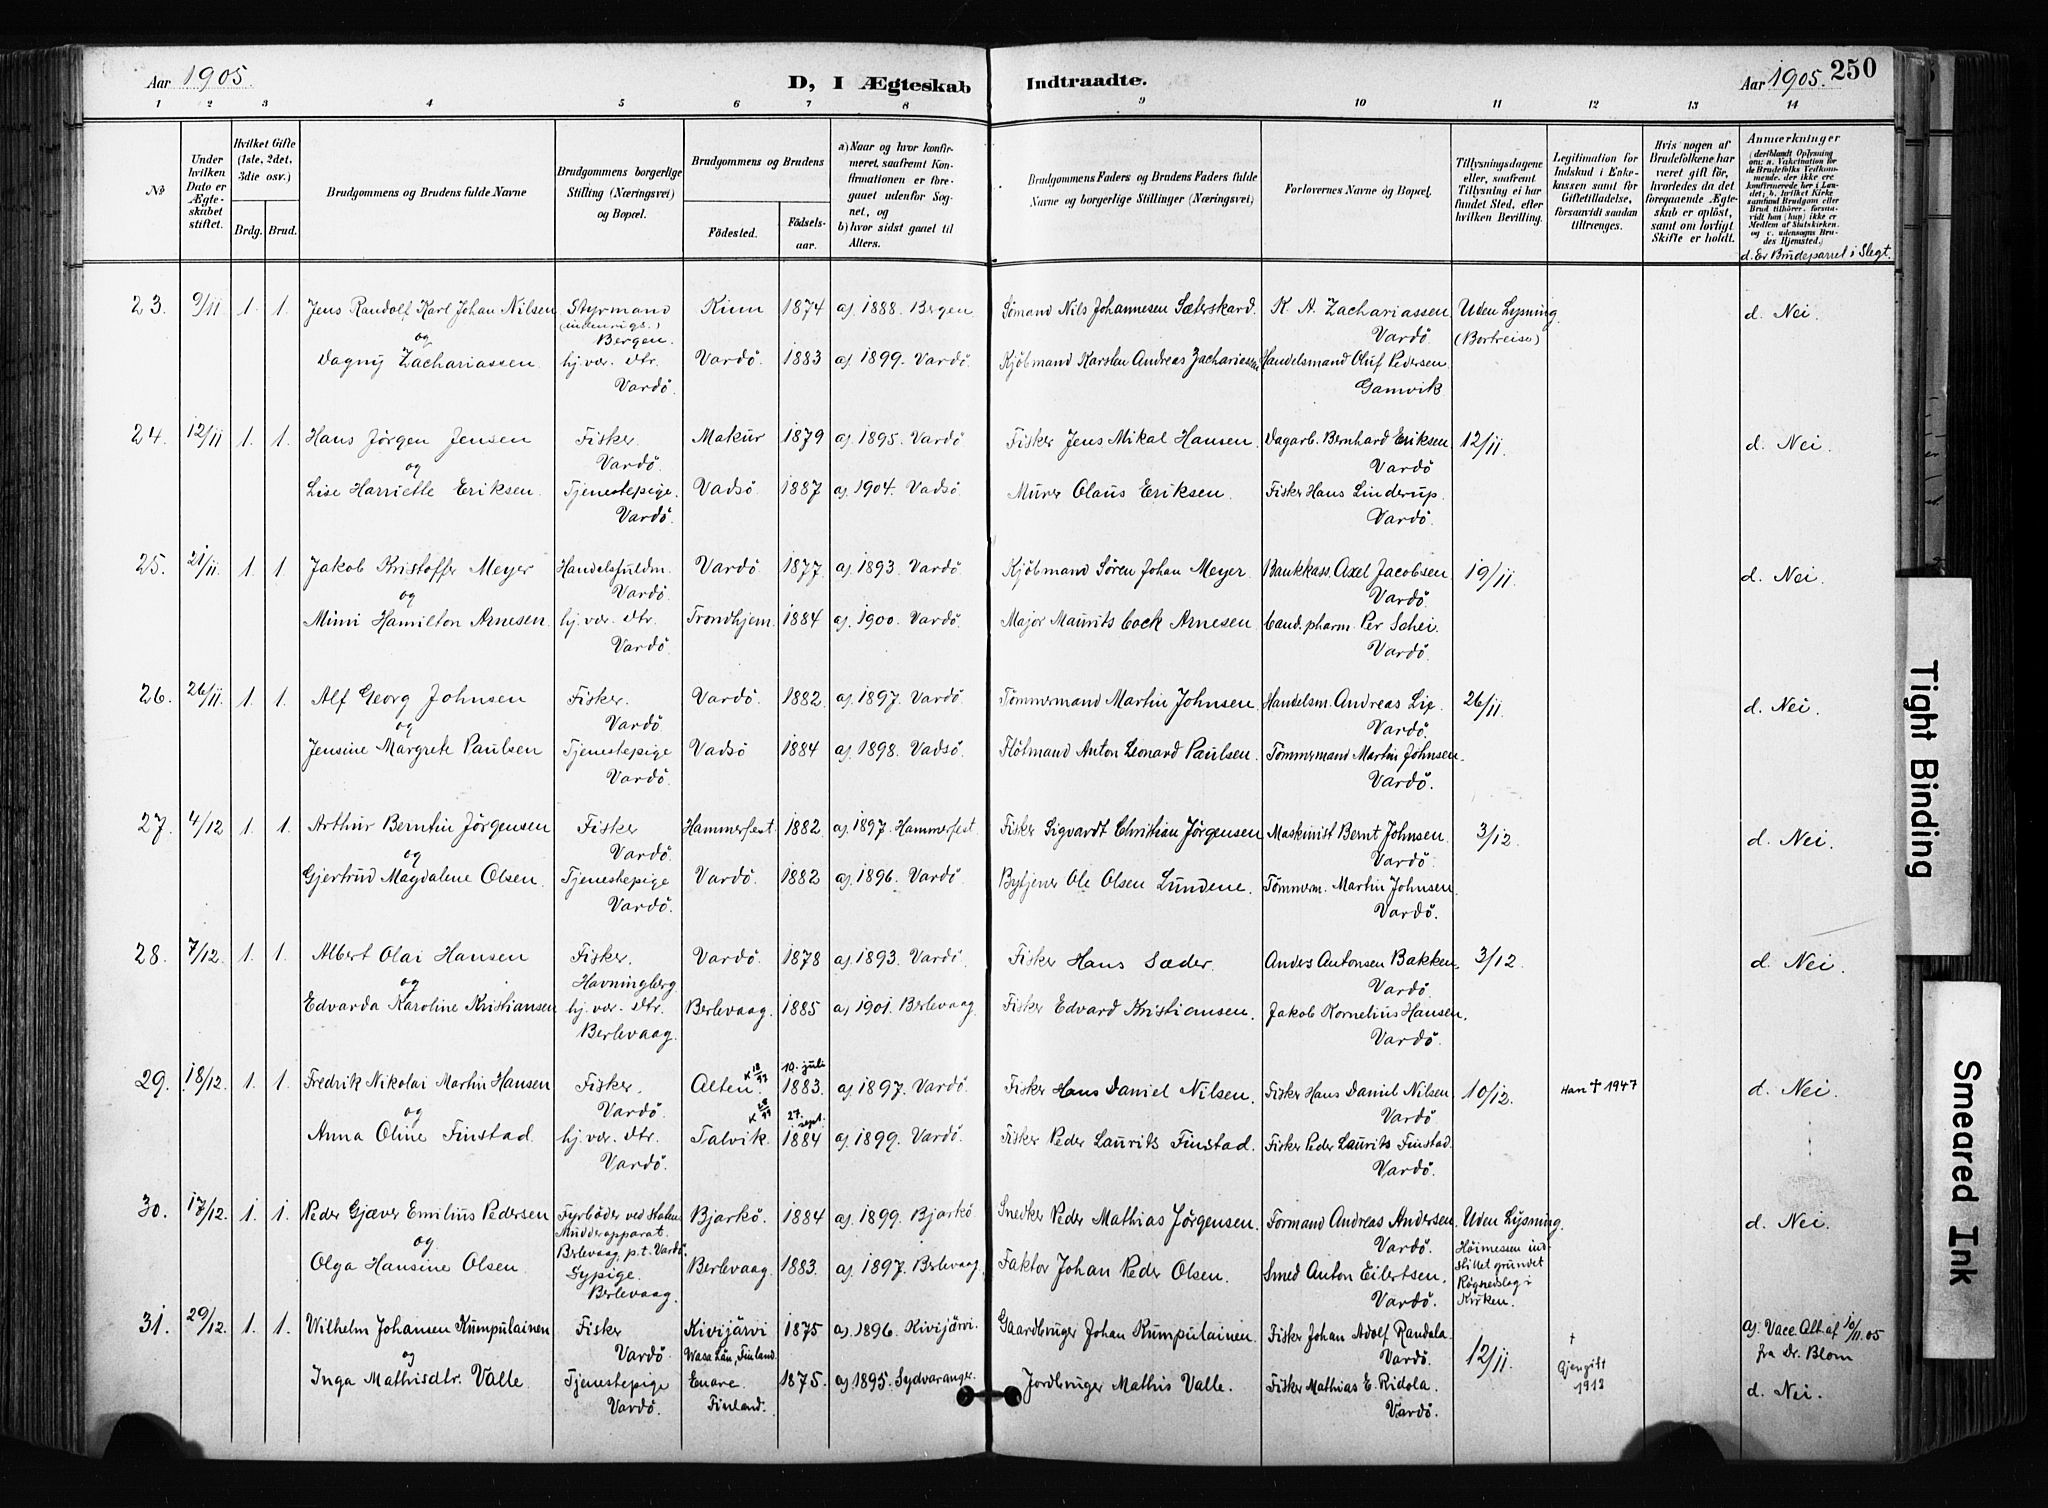 Aar 1905. D, I Ægteskab Indtraadte. Aar 1905. 250
1 2 3 4 5 6 7 8 9 10 11 12 13 14
No
Under hvilken Dato er Ægteskabet stiftet.
Hvilket Gifte (1ste, 2det, 3die osv.)
Brdg. Brud.
Brudgommens og Brudens fulde Navne
Brudgommens borgerlige Stilling (Næringsvei) og Bopæl.
Brudgommens og Brudens
Fødested. Fødselsaar.
a) Naar og hvor konfirmeret, saafremt Konfirmationen er foregaaet udenfor Sognet, og
b) hvor sidst gaaet til Alters.
Brudgommens Faders og Brudens Faders fulde Navne og borgerlige Stillinger (Næringsvei)
Forlovernes Navne og Bopæl.
Tillysningsdagene eller, saafremt Tillysning ei har fundet Sted, efter hvilken Bevilling.
Legitimation for Indskud i Enkekassen samt for Giftetilladelse, forsaavidt saadan tiltrænges.
Hvis nogen af Brudefolkene har været gift før, hvorledes da det foregaaende Ægteskab er opløst, samt om lovligt Skifte er holdt.
Anmærkninger
(deriblandt Oplysning om: a. Vakcination for de Brudefolks Vedkommende, der ikke ere konfirmerede her i Landet; b. hvilket Kirkesamfund Brudgom eller Brud tilhører, forsaavidt han (hun) ikke er Medlem af Statskirken, og c. udensogns Brudes Hjemsted.)
d. Er Brudeparret i Slegt.
23. 9/11 1. 1. Jens Randolf Karl Johan Nilsen Styrmand Kinn 1874 a). 1888. Bergen Sømand Nils Johannesen Sæterskard. K. A. Zachariassen Uden Lysning. d. Nei.
og (indenrigs.) Bergen. Vardö. (Bortreise)
Dagny Zachariassen. hj.vær. dtr. Vardö. 1883 a). 1899. Vardö. Kjöbmand Karsten Andreas Zachariassen Handelsmand Oluf Pedersen
Vardö. Gamvik
24. 12/11 1. 1. Hans Jörgen Jensen Fisker. Makur 1879 a). 1895. Vardö Fisker Jens Mikal Hansen. Dagarb. Bernhard Eriksen 12/11. d. Nei.
og Vardö. Vardö
Lise Harriette Eriksen. Tjenestepige. Vadsö. 1887 a). 1904. Vadsö. Murer Olaus Eriksen. Fisker Hans Linderup.
Vardö. Vardö.
25. 21/11. 1. 1. Jakob Kristoffer Meyer Handelsfuldm. Vardö. 1877. a). 1893. Vardö. Kjöbmand Sören Johan Meyer. Bankkass. Axel Jacobsen 19/11. d. Nei.
og Vardö. Vardö.
Mimi Hamilton Arnesen. hj.vær. dtr. Trondhjem. 1884 a). 1900. Vardö. Major Maurits Cock Arnesen Cand. pharm. Per Schei.
Vardö. Vardö.
26. 26/11. 1. 1. Alf Georg Johnsen Fisker. Vardö. 1882. a). 1897. Vardö. Tömmermand Martin Johnsen. Handelsm. Andreas Lie. 26/11. d. Nei.
og Vardö. Vardö.
Jensine Margrete Paulsen Tjenestepige Vadsö 1884 a). 1898. Vadsö. Flötmand Anton Leonard Paulsen. Tömmermand Martin Johnsen.
Vardö. Vardö.
27. 4/12 1. 1. Arthur Berntin Jörgensen Fisker Hammerfest. 1882. a). 1897. Hammerfest. Fisker Sigvardt Christian Jörgensen Maskinist Bernt Johnsen. 3/12. d. Nei.
og Vardö. Vardö.
Gjertrud Magdalene Olsen. Tjenestepige Vardö. 1882 a). 1896. Vardö. Bytjener Ole Olsen Lundene. Tömmerm. Martin Johnsen.
Vardö. Vardö.
28. 7/12. 1. 1. Albert Olai Hansen Fisker. Vardö. 1878 a). 1893. Vardö. Fisker Hans Sæder. Anders Antonsen Bakken. 3/12. d. Nei.
og Havningberg. Vardö.
Edvarda Karoline Kristiansen hj.vær. dtr. Berlevaag. 1885 a) 1901. Berlevaag. Fisker Edvard Kristiansen. Jakob Kornelius Hansen.
Berlevaag. Vardö.
29. 18/12. 1. 1. Fredrik Nikolai Martin Hansen Fisker. Alten 10. juli 1883. a). 1897. Vardö. Fisker Hans Daniel Nilsen. Fisker Hans Daniel Nilsen 10/12. Han † 1947 d. Nei.
og Vardö. Vardö
Anna Oline Finstad. hj.vær. dtr. Talvik 27. sept. 1884 a). 1899. Vardö. Fisker Peder Laurits Finstad. Fisker Peder Laurits Finstad.
Vardö. Vardö.
30. 17/12. 1. 1. Peder Gjæver Emilius Pedersen Fyrböder ved Statens Bjarkö. 1884 a). 1899. Bjarkö. Snedker Peder Mathias Jörgensen. Formand Andreas Andersen. Uden Lysning. d. Nei.
og Mudderapparat. Berlevaag, p.t. Vardö. Vardö. Höimessen ind-
Olga Hansine Olsen. Sypige. Berlevaag. 1883. a). 1897. Berlevaag. Faktor Johan Peder Olsen. Smed Anton Eilertsen. stillet grundet
Berlevaag. Vardö. Røgnedslag i Kirken.
31. 29/12. 1. 1. Wilhelm Johansen Kumpulainen Fisker Kivijärvi 1875 a). 1896. Kivijärvi. Gaardbruger Johan Kumpulainen. Fisker Johan Adolf Randala. 12/11. † a). Vacc. Att af 10/11.05
og Vardö. Wasa Län, Finland. Vardö. Gjengift fra Dr. Blom
Inga Mathisdtr. Valle. Tjenestepige Enare. 1875. a) 1895. Sydvaranger. Jordbruger Mathis Valle. Fisker Mathias E. Ridola. 1913 d. Nei.
Vardö. Finland. Vardö.
Tight Binding
Smeared Ink